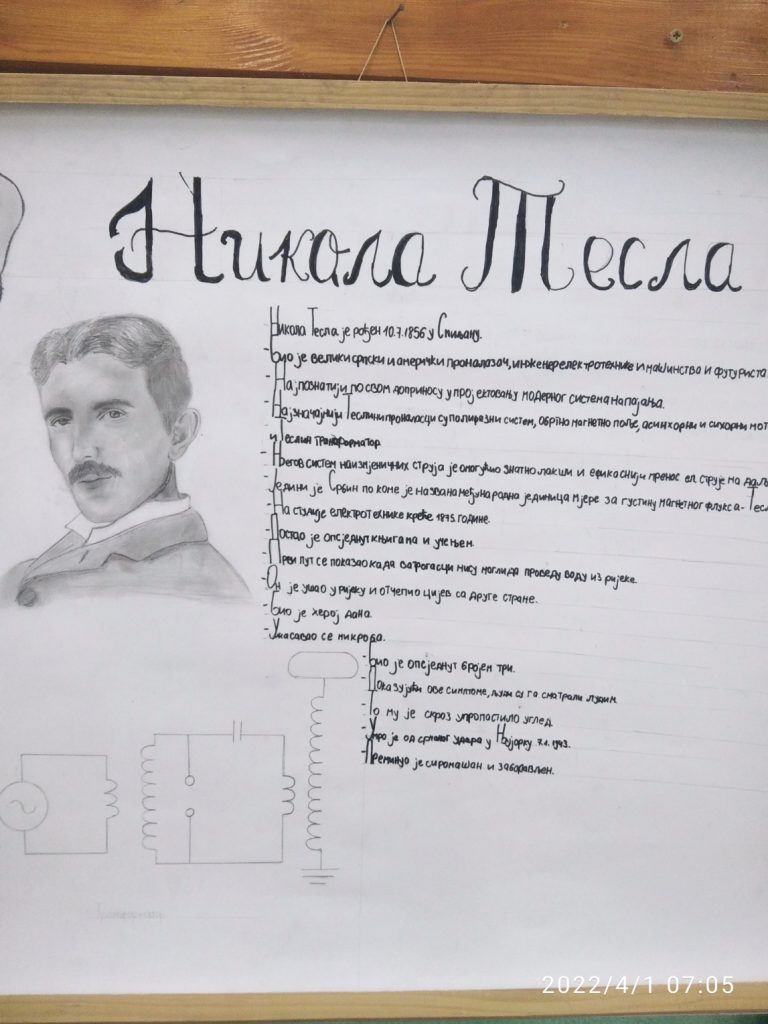 Никола Тесла
Никола Тесла је рођен 10.7.1856 у Смиљану.
-Био је велики српски и амерички проналазач, инжењер електротехнике и машинства и футуриста.
-Најпознатији по свом доприносу у пројектовању модерног система напајања.
-Најзначајнији Теслини проналасци су полифазни систем, обртно магнетно поље, асинхорни и сихорни мот
и Теслин трансформатор
-Његов систем наизмјеничних струја је омогућио знатно лакши и ефикаснији пренос ел. струје на даљ
-Једини је Србин по коме је названа међународна јединица мјере за густину магнетног флукса-Тесл
-На студије електротехнике креће 1875. године.
-Постао је опсједнут књигама и учењем.
-Први пут се показао када ватрогасци нису могли да проведу воду из ријеке.
-Он је ушао у ријеку и отчепио цијев са друге стране.
-Био је херој дана.
-Ужасавао се микроба.
-Био је опсједнут бројем три.
-Показујући ове симптоме, људи су га сматрали лудим.
-То му је скроз упропастило углед.
-Умро је од срчаног удара у Њујорку 7.1.1943.
-Преминуо је сиромашан и заборављен.
2022/4/1 07:05